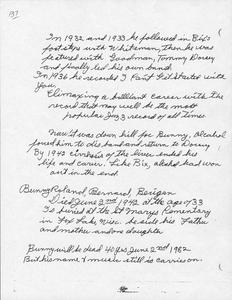 137
In 1932 and 1933 he followed in Bix's
footsteps with Whiteman, then he was
featured with Goodman, Tommy Dorsey
and finally led his own band.
In 1936 he records I Can't Get Started with
You.
Climaxing a brilliant career with the
record that may well be the most
popular Jazz record of all times
Now it was down hill for Bunny, Alcohol
forced him to disband and return to Dorsey
By 1942 cirrhosis of the liver ended his
life and career. Like Bix, alcohol had won
out in the end.
Bunny Roland, Bernard, Berigan
Died June 2nd 1942 at the age of 33
Is buried at the St Marys Cementary
in Fox Lake Wisc. he side his Father
and mother and one daughter
Bunny will be dead 40 yrs June 2nd 1982
But his name & music still is carries on.